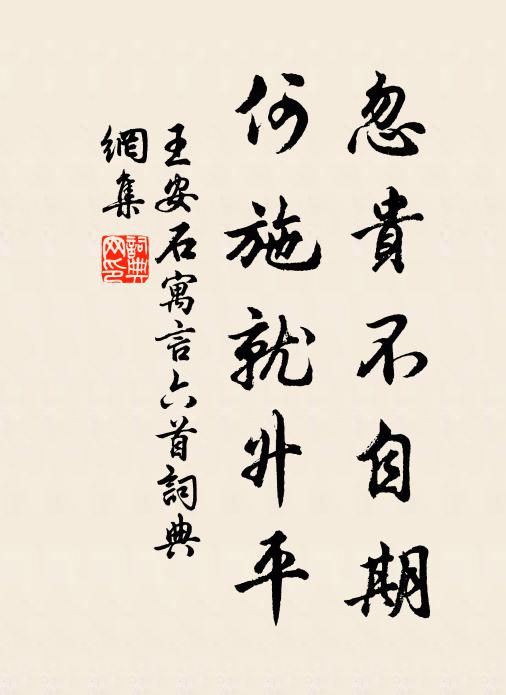 忽貴不自期
何施就升平
王安石寓言六首詞典
網集
詞典网印